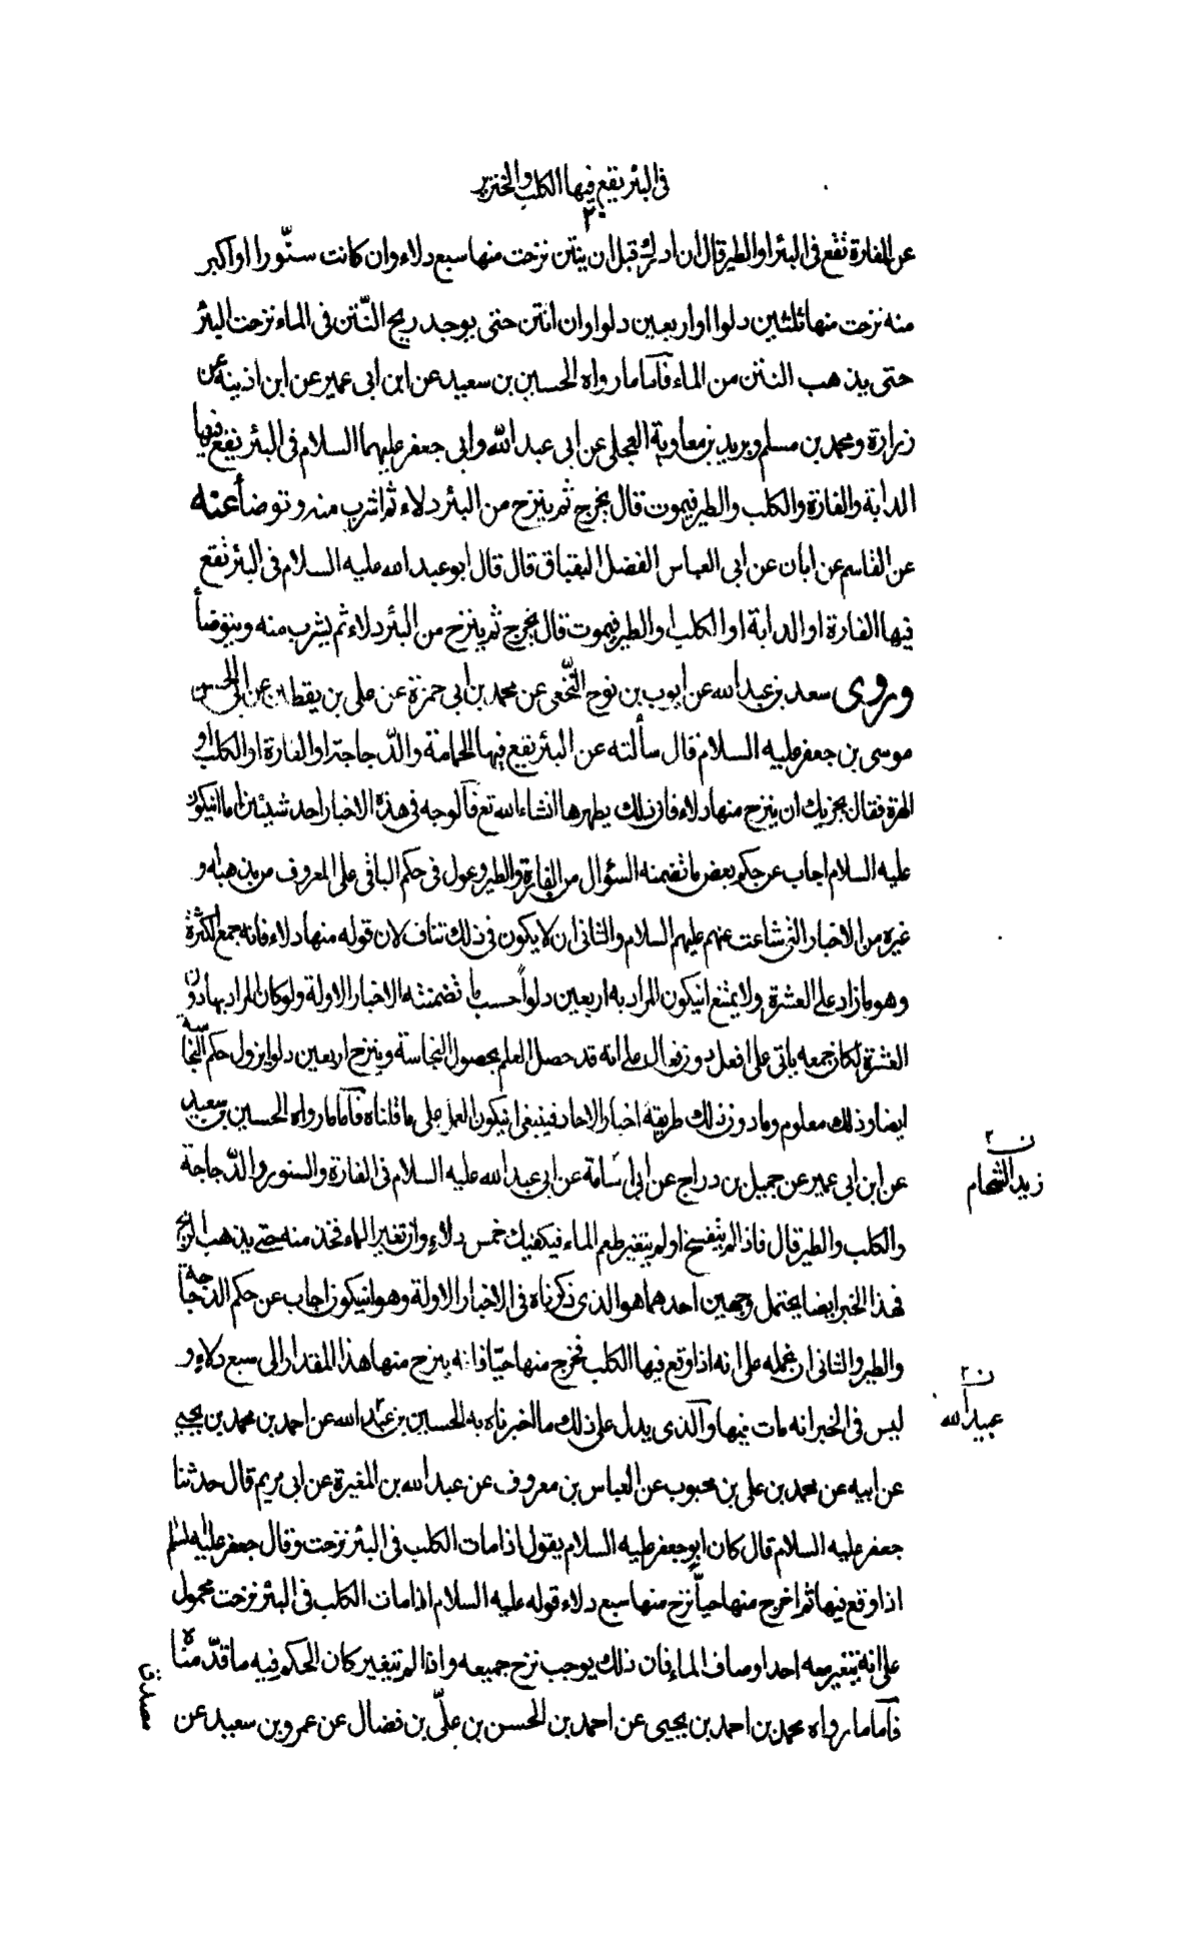 فى البئر يقع فيها الكلب والخنزير
٢٠
عن الفارة تقع فى البئر او الطير قال ان ادركته قبل ان ينتن نزحت منها سبع دلاء وان كانت سنّورا او اكبر
منه نزحت منها ثلثين دلوا او اربعين دلوا وان انتن حتى يوجد ريح النّتن فى الماء نزحت البئر
حتى يذهب النتن من الماء فآما ما رواه الحسين بن سعيد عن ابن ابى عمير عن ابن اذينه عن
زرارة ومحمد بن مسلم وبريد بن معاوية العجلى عن ابى عبد الله وابى جعفر عليهما السلام فى البئر يقع فيها
الدابة والفارة والكلب والطير فيموت قال يخرج ثم ينزح من البئر دلاء ثم اشرب منه وتوضأ عنه
عن القاسم عن ابان عن ابى العباس الفضل البقباق قال قال ابو عبد الله عليه السلام فى البئر تقع
فيها الفارة او الدابة او الكلب او الطير فيموت قال يخرج ثم ينزح من البئر دلاء ثم يشرب منه ويتوضأ
وروى سعد بن عبد الله عن ايوب بن نوح النّخعى عن محمد بن ابى حمزة عن على بن يقطين عن ابى الحسن
موسى بن جعفر عليه السلام قال سألته عن البئر تقع فيها الحمامة والدّجاجة او الفارة او الكلب او
الهرة فقال يجزيك ان ينزح منها دلاء فان ذلك يطهرها انشاء الله تع فآلوجه فى هذه الاخبار احد شيئين اما انيكون
عليه السلام اجاب عن حكم بعض ما تضمنه السؤال من الفارة والطير وعول فى حكم الباقى على المعروف من مذهبه و
غيره من الاخبار التى شاعت عنهم عليهم السلام والثانى ان لا يكون فى ذلك تناف لان قوله منها دلاء فانه جمع الكثرة
وهو ما زاد على العشرة ولا يمتنع انيكون المراد به اربعين دلواً حسب ما تضمنته الاخبار الاولة ولو كان المراد بها دون
العشرة لكان جمعه ياتى على افعل دون فعال على انه قد حصل العلم بحصول النجاسة وبنزح اربعين دلوا يزول حكم النجاسة
ايضا وذلك معلوم وما دون ذلك طريقه اخبار الاحاد فينبغى انيكون العمل على ما قلناه فآما ما رواه الحسين بن سعيد
عن ابن ابى عمير عن جميل بن دراج عن ابى اسامة عن ابى عبد الله عليه السلام فى الفارة والسنور والدّجاجة
ن ٢
زيد الشحام
والكلب والطير قال فاذا لم يتفسخ او لم يتغير طعم الماء فيكفيك خمس دلاء وان تغير الماء فخذ منه حتى يذهب الريح
فهذا الخبر ايضا يحتمل وجهين احدهما هو الذى ذكرناه فى الاخبار الاولة وهو انيكون اجاب عن حكم الدجاجة
والطير والثانى ان نحمله على انه اذا وقع فيها الكلب فخرج منها حيّا فانه ينزح منها هذا المقدار الى سبع دلاء و
ليس فى الخبر انه مات فيها وآلذى يدل على ذلك ما اخبرناه به الحسين بن عبد الله عن احمد بن محمد بن يحيى
ن ٢
عبيد الله
عن ابيه عن محمد بن على بن محبوب عن العباس بن معروف عن عبد الله بن المغيرة عن ابى مريم قال حدثنا
جعفر عليه السلام قال كان ابو جعفر عليه السلام يقول اذا مات الكلب فى البئر نزحت وقال جعفر عليه السلم
اذا وقع فيها ثم اخرج منها حياّ نزح منها سبع دلاء قوله عليه السلام اذا مات الكلب فى البئر نزحت محمول
على انه يتغير معه احد اوصاف الماء فان ذلك يوجب نزح جميعه واذا لم تتغير كان الحكم فيه ما قدّمناه
فآما ما رواه محمد بن احمد بن يحيى عن احمد بن الحسن بن علىّ بن فضال عن عمرو بن سعيد عن
مصدق